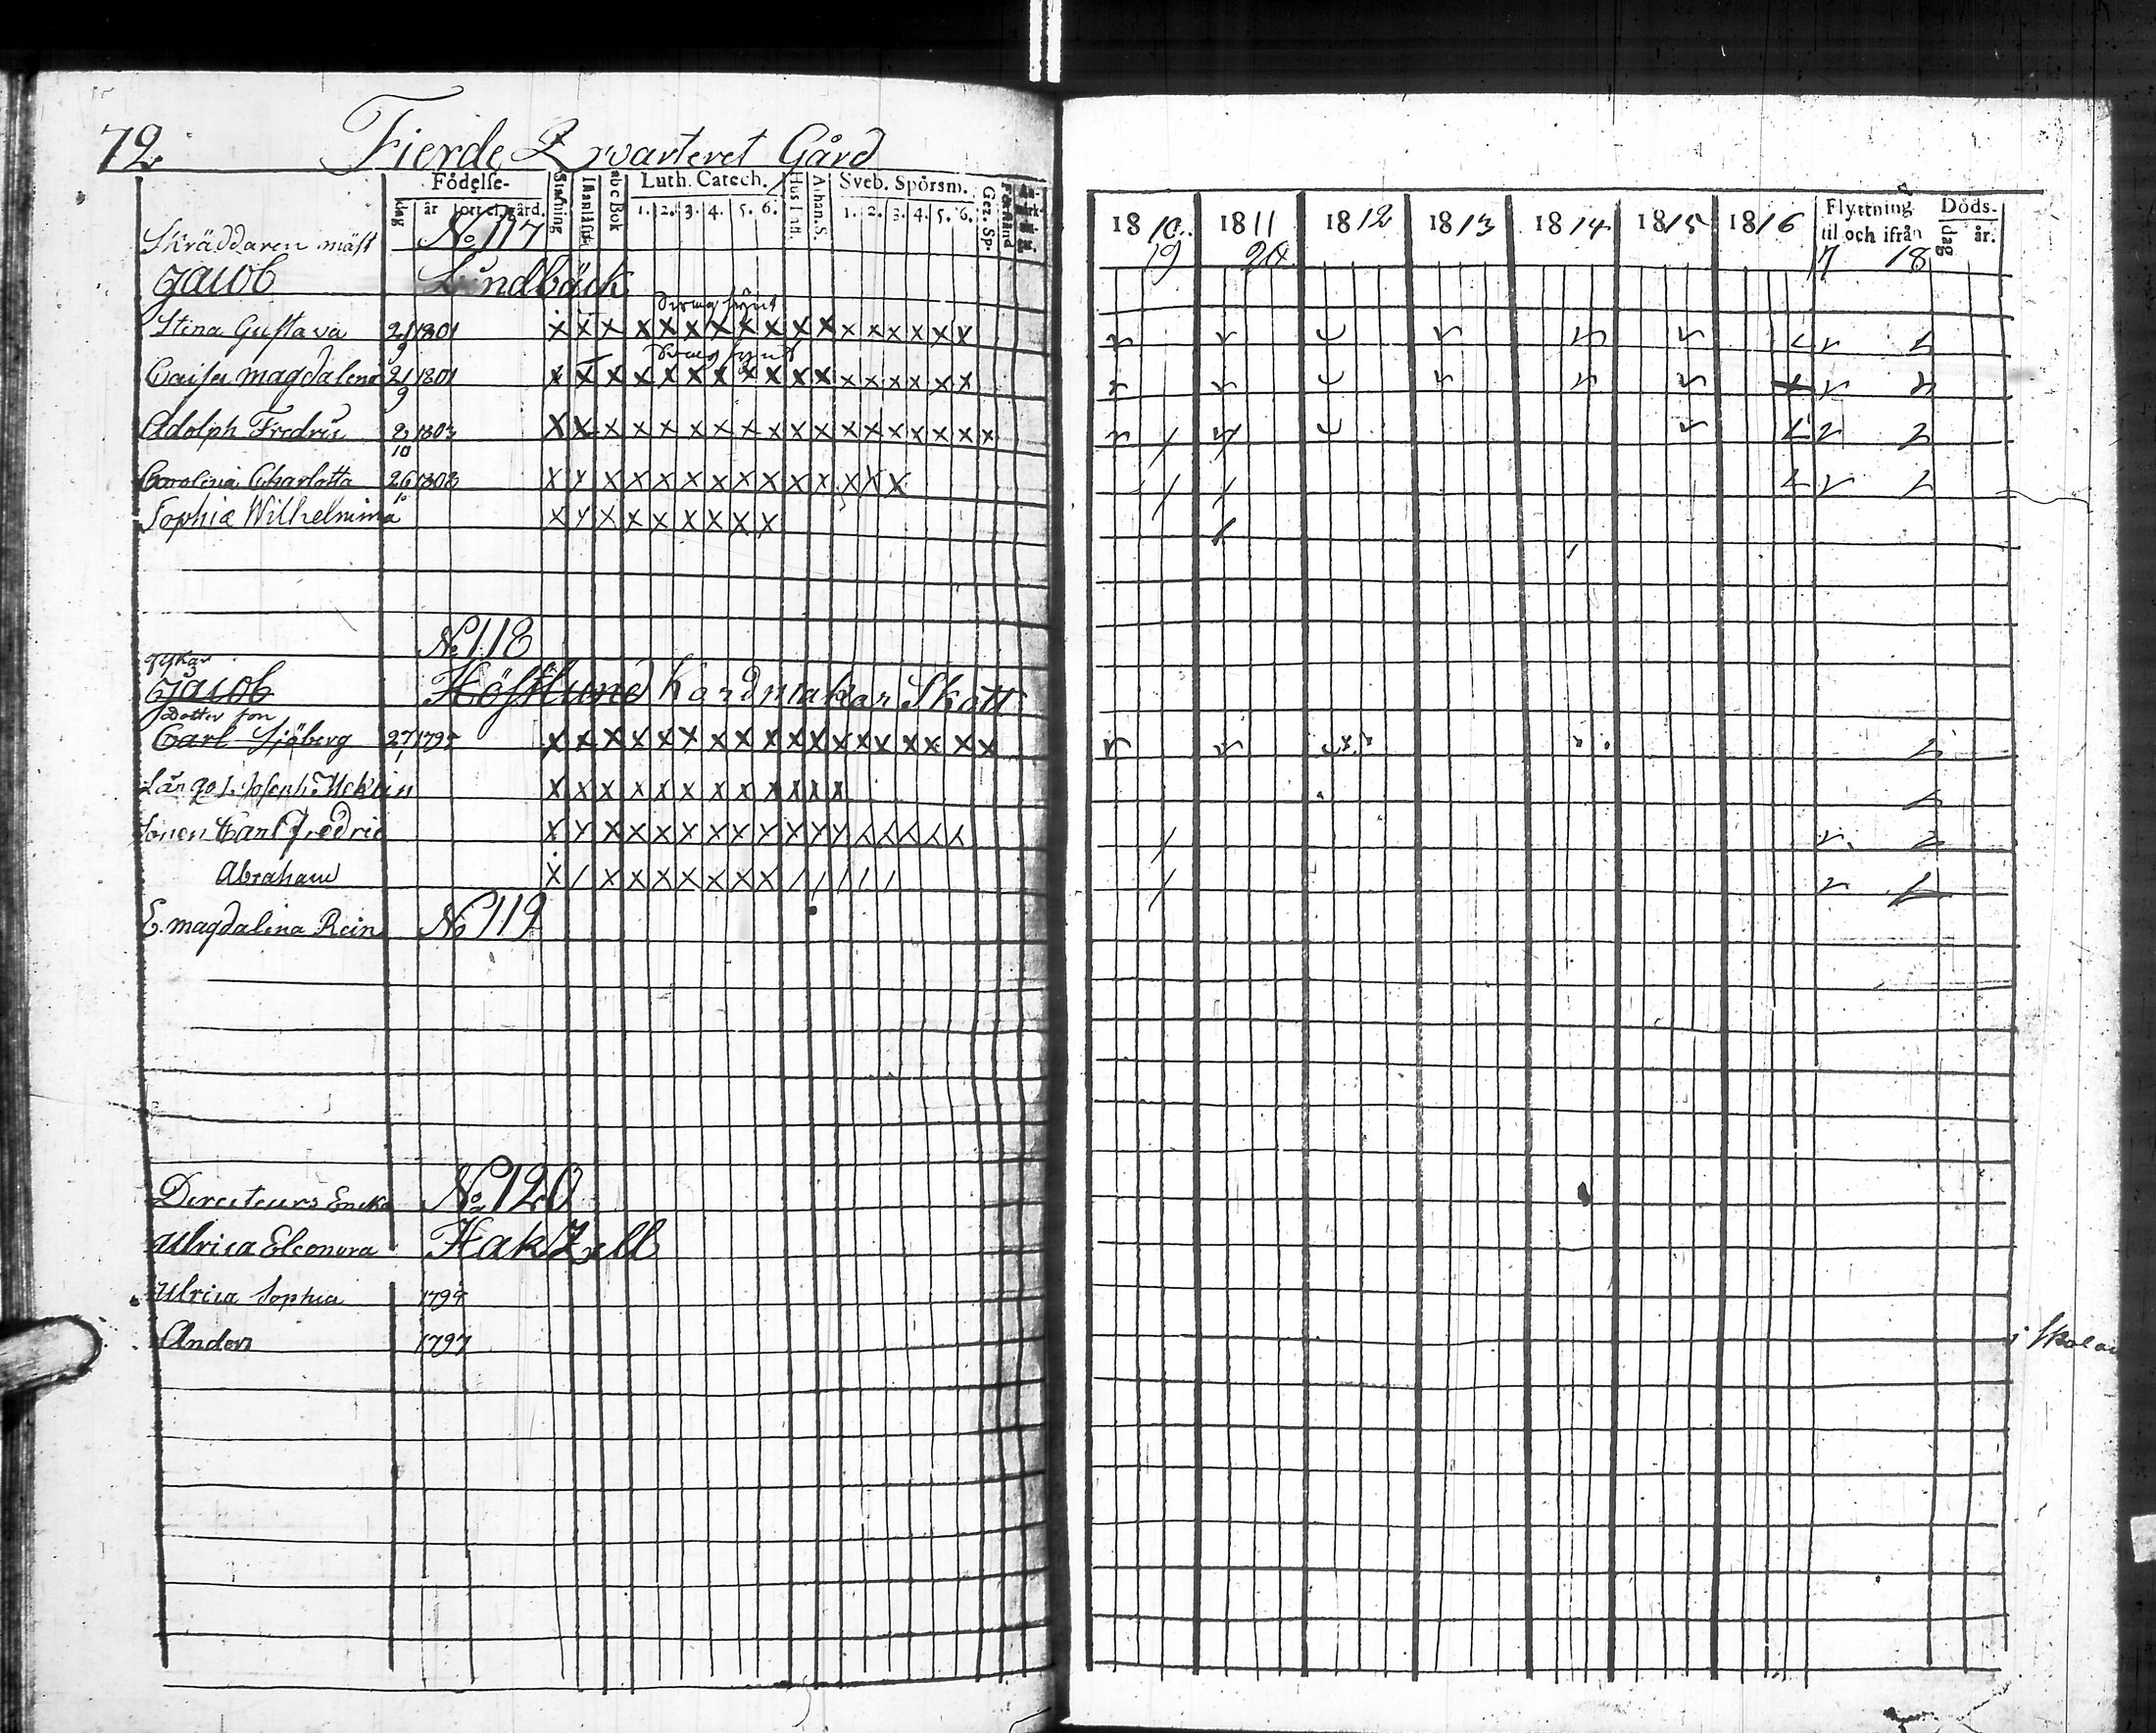 72. Fierde Qvarteret Gård
Födelse- Stafning Innanläsn. abc Bok Luth. Catech. Hus T. Athan. S. Sveb. Spörsm. Gez. Sp. Förstånd
dag år ort el. gård. 1. 2. 3. 4. 5. 6. 1. 2. 3. 4. 5. 6.
Skräddaren mäst No 117
Jacob Lundbäck
Stina Gustava 21/9 1801 x x x x x x x x x x x x x x x x x
Caisa magdalena 21/9 1801 x x x x x x x x x x x x x x x x
Adolph Fredric 2/10 1803 x x x x x x x x x x x x x x x x x x
Carolina Charlotta 26/10 1808 x x x x x x x x x x x x x x
Sophia Wilhelmina x x x x x x x x x
No 118
Jacob Höfklund Kardmakar Skott
dotter son
Carl Sjöberg 27/1 1795 x x x x x x x x x x x x x x x x x x
x x x x x x x x x x x x
Sonen Carl Fredric x x x x x x x x x x x x x x x x x
Abraham x / x x x x x x x / / / / /
E. magdalena Rein No 119
Directeurs Encka No 120
Ulrica Eleonora HakZell
Ulrica Sophia 1794
Anders 1797
1810 1811 1812 1813 1814 1815 1816 Flyttning til och ifrån Döds- dag år.
19 20 17 18
i Skolan